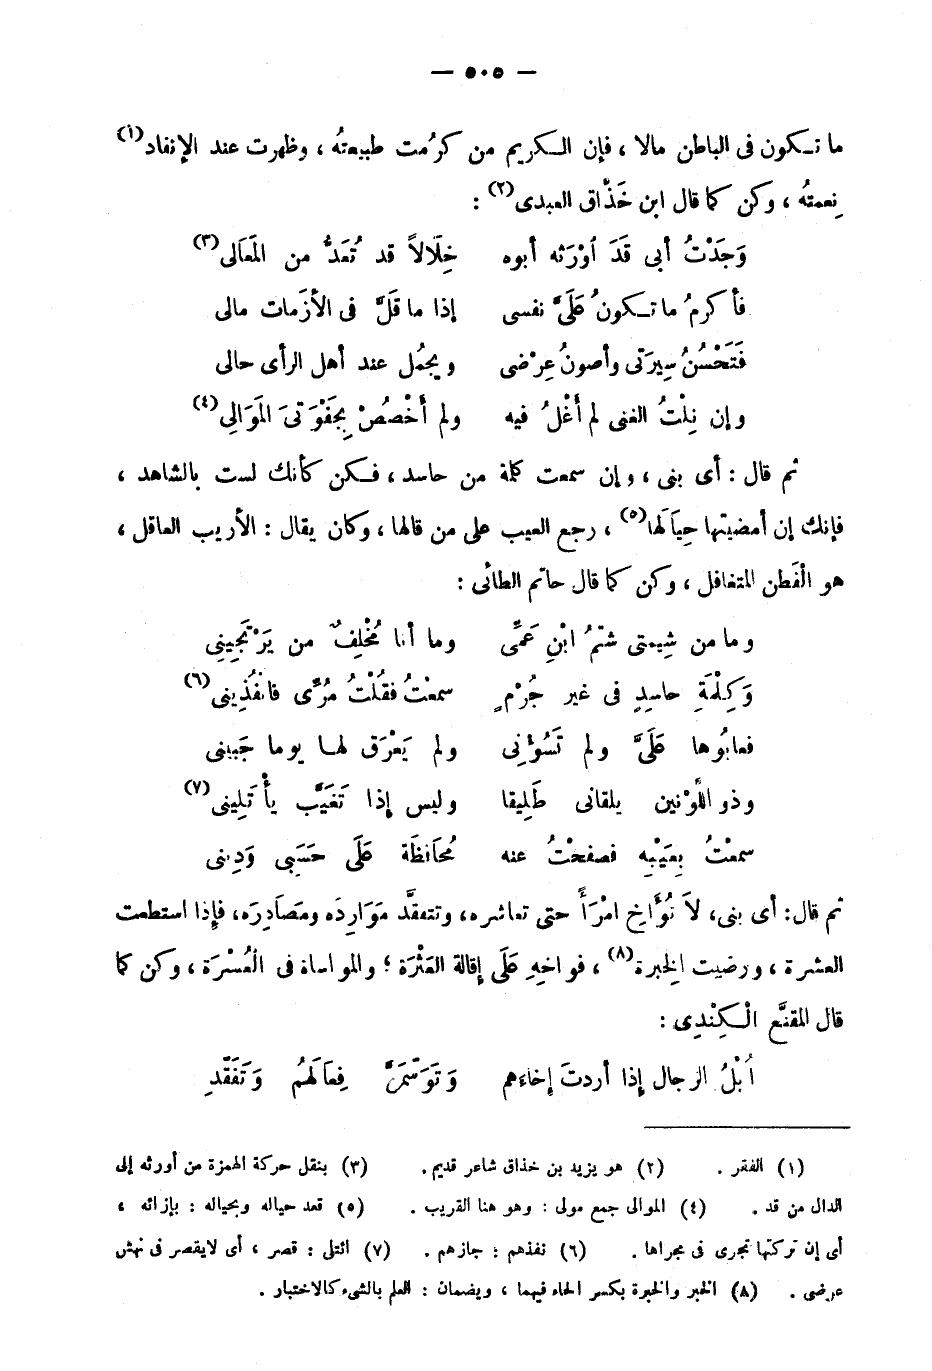 — ٥٠٥ —
ما تكون فى الباطن مالا ، فإن الكريم من كرُمت طبيعتهُ ، وظهرت عند الإنفاد(١)
نِعمتهُ ، وكن كما قال ابن خَذَّاق العبدى(٢) :
وَجَدْتُ أبى قَدَ اُوْرَثه أبوه خِلَالاً قد تُعَدُّ من المَعَالى(٣)
فأكرمُ ما تكونُ عَلَىَّ نفسى إذا ما قَلَّ فى الأزَمات مالى
فَتَحْسُنُ سِيرَتى وأصونُ عِرْضى ويجمُل عند أهل الرأى حالى
وإن نِلْتُ الغنى لم أغْلُ فيه ولم أخْصُصْ بِجَفْوَتىَ المَوَالِى(٤)
ثم قال : أى بنى ، وإن سمعت كلمة من حاسد ، فكن كأنك لست بالشاهد ،
فإنك إن أمضيتها حِيَالَها(٥) ، رجع العيب على من قالها ، وكان يقال : الأريب العاقل ،
هو الْفَطن المتغافل ، وكن كما قال حاتم الطائى :
وما من شِيمتى شتْمُ ابْنِ عَمِّى وما أنا مُخْلِفٌ من يَرْتَجِينِى
وَكِلْمَةِ حاسِدٍ فى غير جُرْمٍ سمعْتُ فقُلْتُ مُرِّى فانْفُذِينى(٦)
فعابُوها عَلَىَّ ولم تَسُؤْنِى ولم يَعْرَق لها يوما جَبينى
وذو اللَّوْنين يلقانى طَلِيقا وليس إذا تَغَيَّب يأْتَلِينى(٧)
سمعْتُ بِعَيْبِه فصفحْتُ عنه مُحَافظَة عَلَى حَسَبِى وَدِينى
ثم قال: أى بنى، لاَ تُؤَاخِ امْرَأً حتى تعاشره، وتتفقَّد مَوَارِدَه ومَصَادِرَه، فإذا استطعت
العشرة ، ورضيت الِخبرة(٨) ، فواخِهِ عَلَى إقالة العَثْرَة ؛ والمواساة فى الْعُسْرَة ، وكن كما
قال المقنَّع الْكِنْدِى :
اُبْلُ الرجال إذا أردتَ إخاءهم وَتَوَسَّمَنَّ فِعالَهُم وَتَفَقَّدِ
(١) الفقر . (٢) هو يزيد بن خذاق شاعر قديم . (٣) بنقل حركة الهمزة من أورثه إلى
الدال من قد . (٤) الموالى جمع مولى : وهو هنا القريب . (٥) قعد حياله وبحياله : بإزائه ،
أى إن تركتها تجرى فى مجراها . (٦) نفذهم : جازهم . (٧) ائتلى : قصر ، أى لايقصر فى نهش
عرضى . (٨) الخبر والخبرة بكسر الخاء فيهما ، ويضمان : العلم بالشىء كالاختبار .